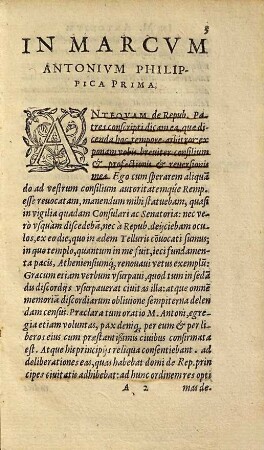 5
IN MARCVM
ANTONIVM PHILIP-
PICA PRIMA.
ANTEQVAM de Repub. Pa-
tres conscripti dicam ea, quæ di-
cenda hoc tempore arbitror: ex-
ponam vobis breuiter consilium
& profectionis & reuersionis
meæ. Ego cum sperarem aliquã
do ad vestrum consilium autoritatemque Remp.
esse reuocatam, manendum mihi statuebam, quasi
in vigilia quadam Consulari ac Senatoria: nec ve-
ro vsquam discedebã, nec à Repub. deijciebam ocu-
los, ex eo die, quo in ædem Telluris conuocati sumus;
in quo templo, quantum in me fuit, ieci fundamen-
ta pacis, Atheniensiumq́; renouaui vetus exemplũ:
Græcum etiam verbum vsurpaui, quod tum in seda̅-
dis discordijs vsurpauerat ciuitas illa: atque omnẽ
memoriã discordiarum obliuione sempiterna delen
dam censui. Præclara tum oratio M. Antoni, egre-
gia etiam voluntas, pax deniq́; per eum & per li-
beros eius cum præstantissimis ciuibus confirmata
est. Atque his principijs reliqua consentiebant. ad
deliberationes eas, quas habebat domi de Rep. prin
cipes ciuitatis adhibebat: ad hunc ordinem res opti
A 2
mas de-